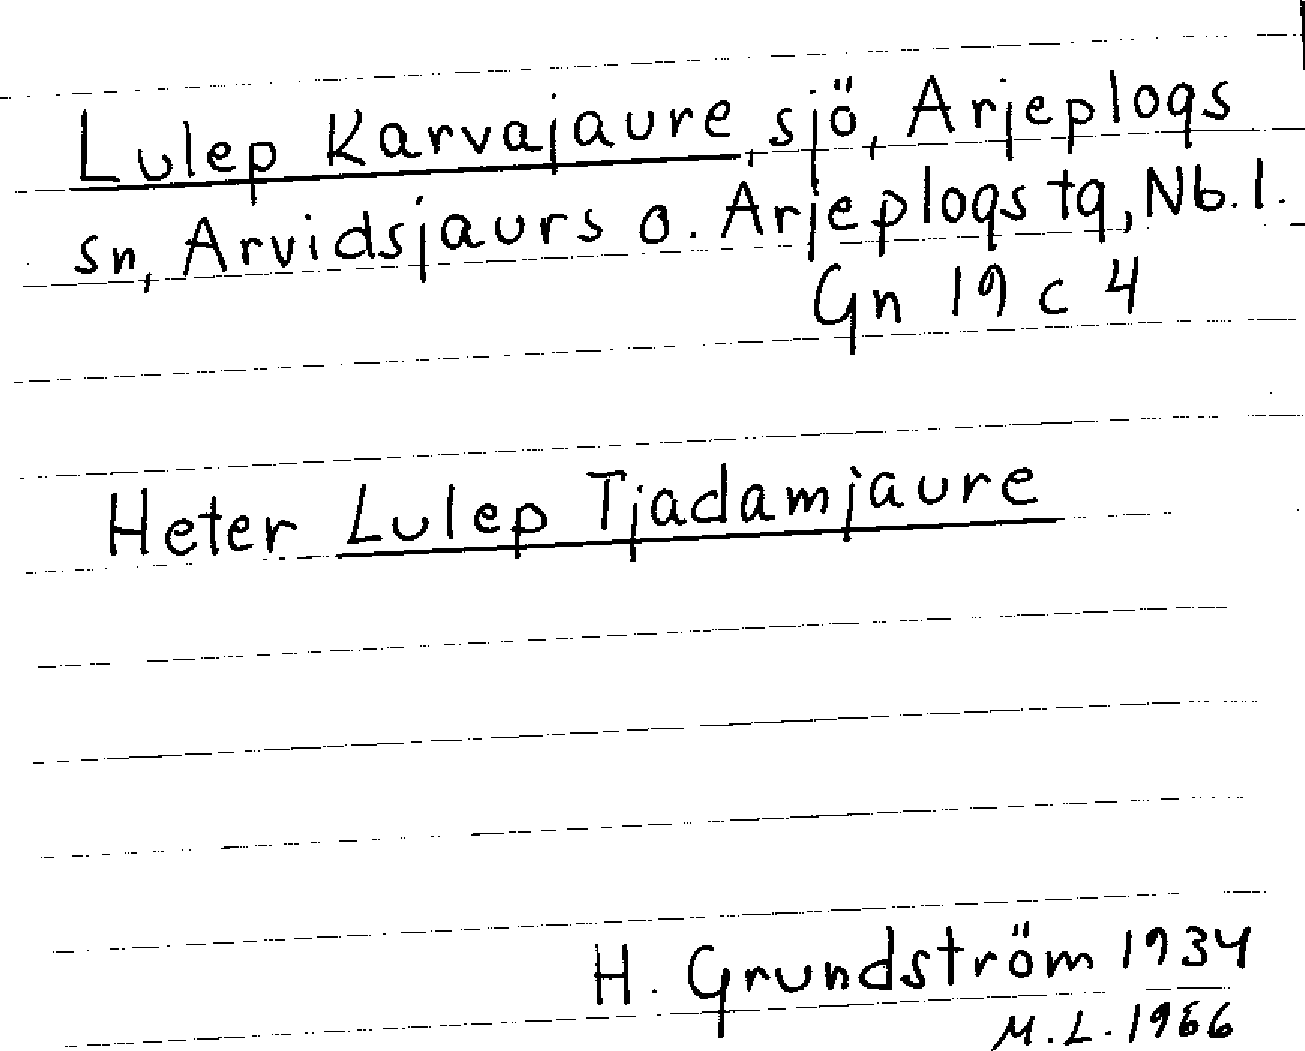 Lulep Karvajaure, sjö, Arjeplogs
sn, Arvidsjaurs o. Arjeplogs tg, Nb. l.
Gn 19 c 4
Heter Lulep Tjadamjaure
H. Grundström 1934
M. L. 1966